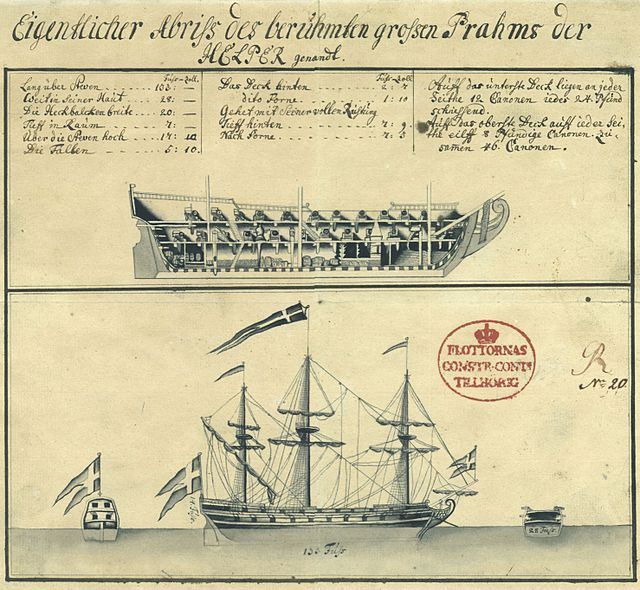 Eigentlicher Abriß des berühmten großen Prahms der
HELPER genandt.
Fuß - Zoll.
Lang über Steven - - - - 103: —
Weit in Seiner Haut - - - 28: —
Die Heckbalcken breite - - 20: —
Tieff in Raum - - - 7: —
Über die Steven hoch - - - 17: 10
Die Fälben - - - 5: 10
Fuß - Zoll
Das Deck hinten - - - 2: 7
dito Forne - - - 1: 10
Gehet mit Seiner vollen Rüstung
Tieff hinten - - - 7: 9
Nach Forne - - - 7: 3
Auff das unterste Deck liegen an jeder
Seithe 12 Canonen jeder 24 Pfünd
schießend.
Auff das oberste Deck auff jeder Sei-
the eilff 8 Pfündige Canonen zu-
samen 46 Canonen.
FLOTTORNAS
CONSTR-CONT:
TILLHÖRIG
R
No: 20.
133 Fuß
28 Fuß